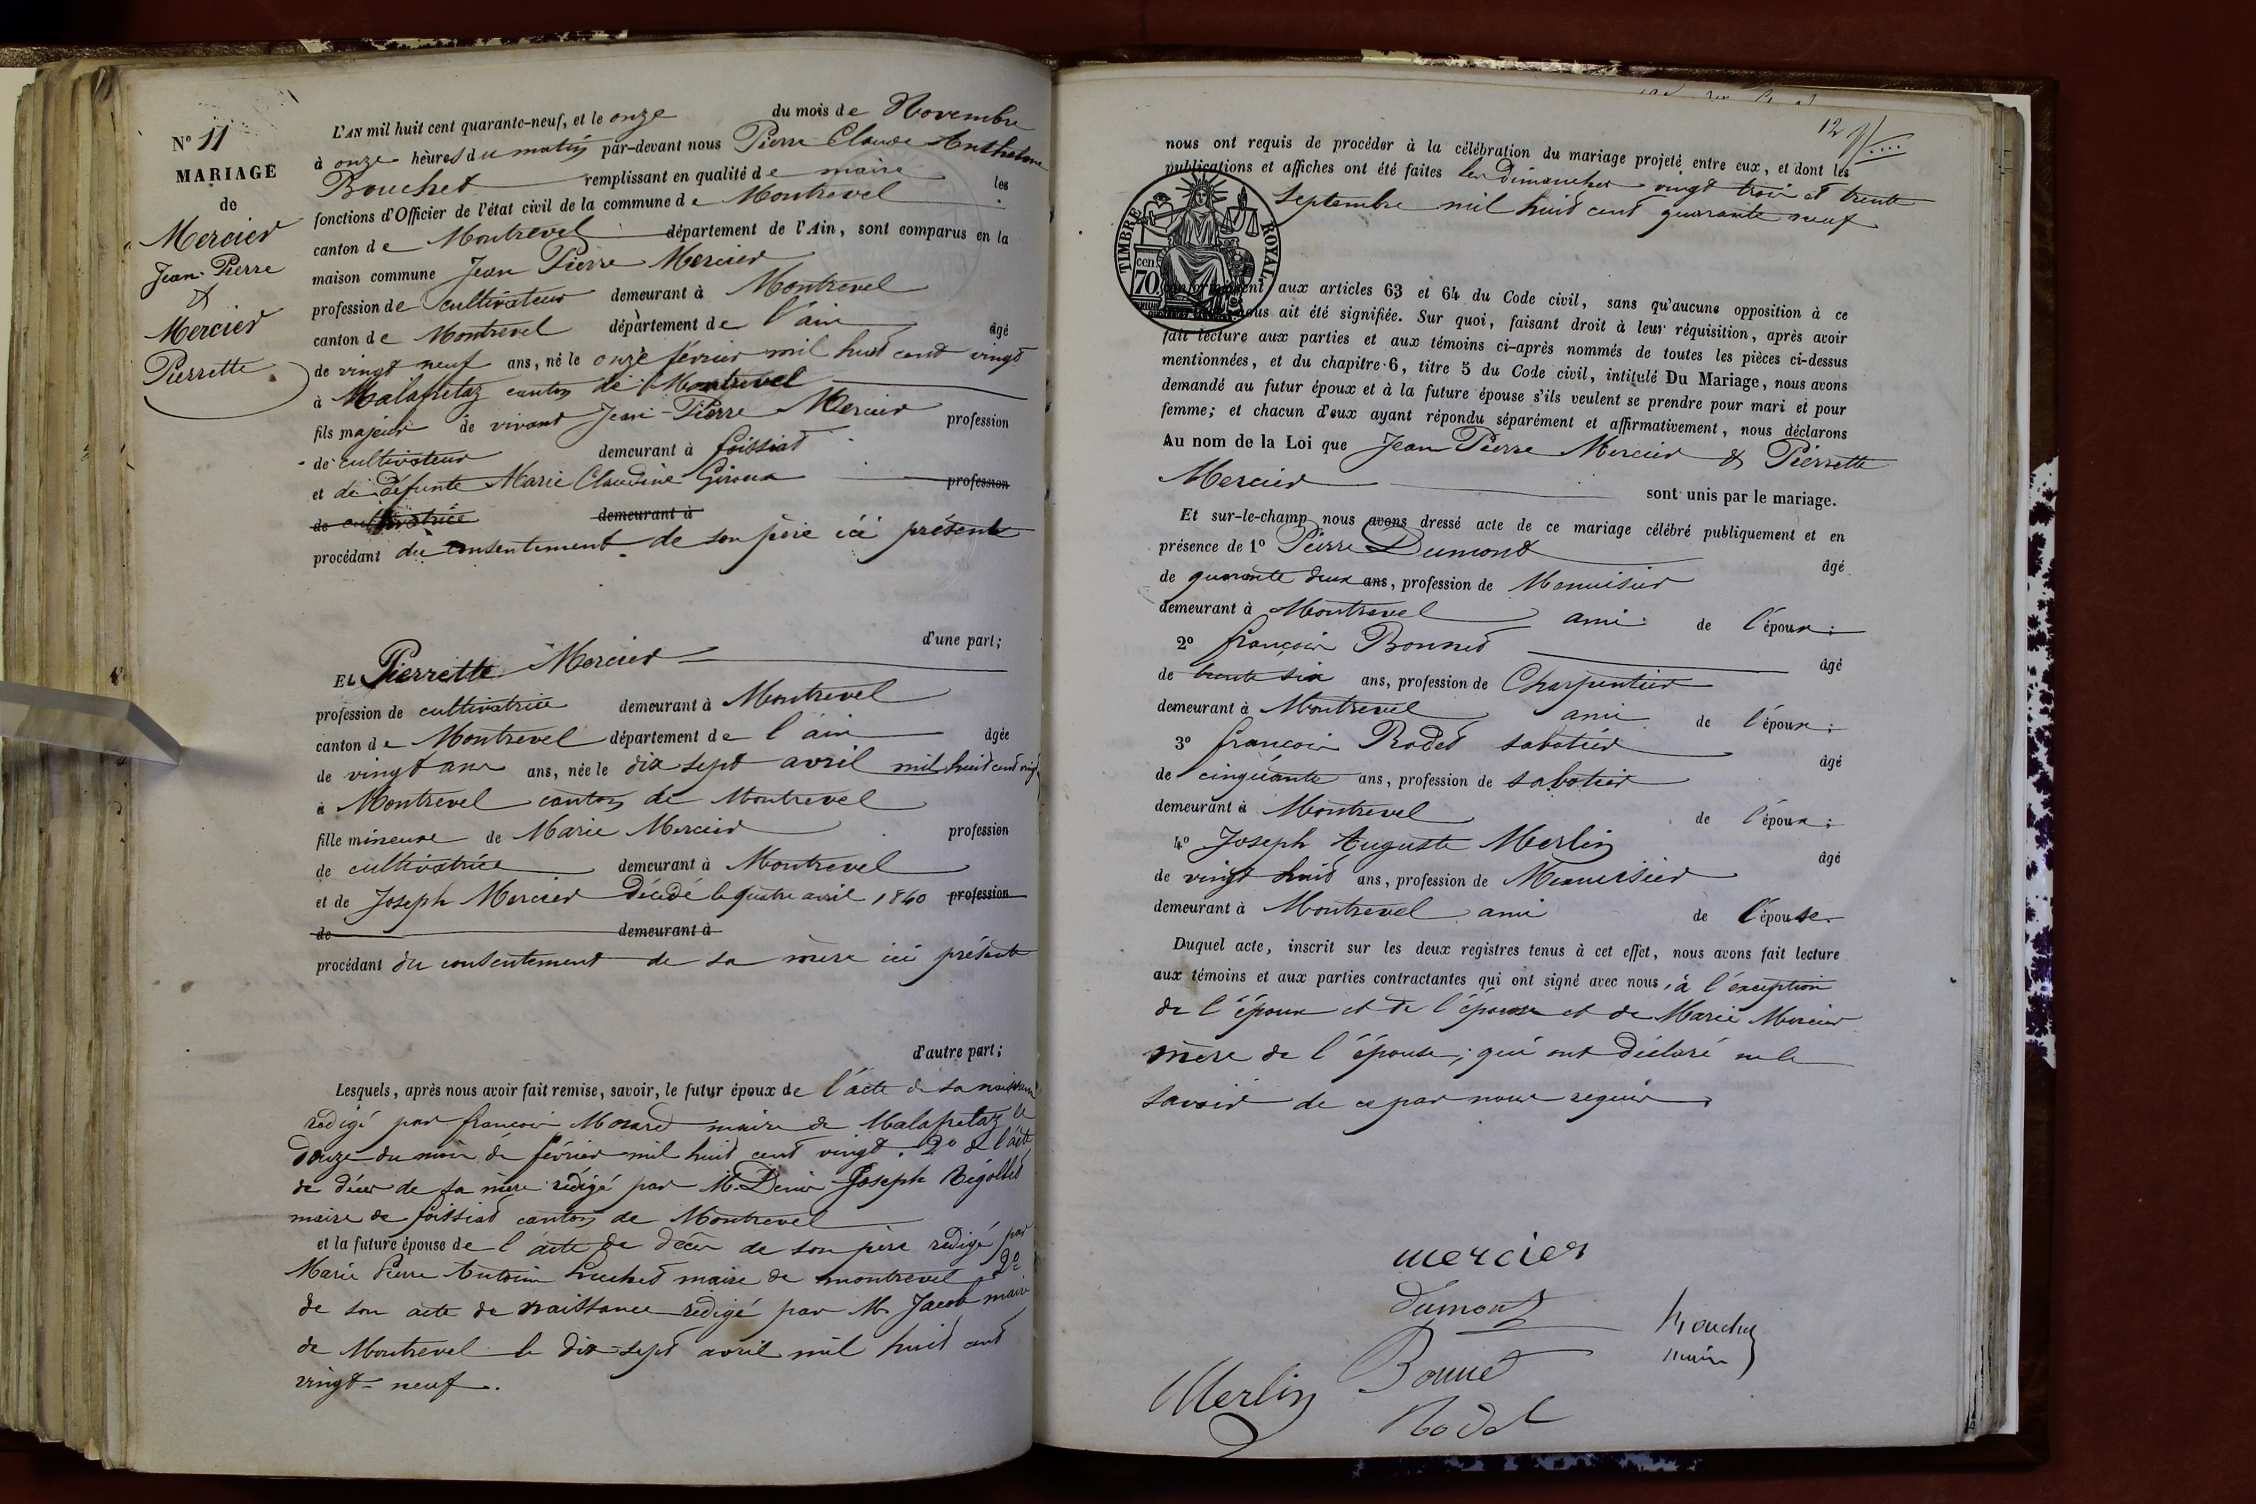 N° 11
MARIAGE
de
Mercier
Jean-Pierre
&
Mercier
Pierrette
L'AN mil huit cent quarante-neuf, et le onze du mois de Novembre
à onze heures du matin par-devant nous Pierre Claude Anthelme
Bouchet remplissant en qualité de maire les
fonctions d'Officier de l'état civil de la commune de Montrevel
canton de Montrevel département de l'Ain, sont comparus en la
maison commune Jean Pierre Mercier
profession de cultivateur demeurant à Montrevel
canton de Montrevel département de l'ain âgé
de vingt neuf ans, né le onze février mil huit cent vingt
à Malafretaz canton de Montrevel
fils majeur de vivant Jean-Pierre Mercier profession
de cultivateur demeurant à foissiat
et de défunte Marie Claudine Giroux profession
de cultivatrice demeurant à
procédant du consentement de son père ici présente
d'une part;
Et Pierrette Mercier
profession de cultivatrice demeurant à Montrevel
canton de Montrevel département de l'ain âgée
de vingt ans ans, née le dix sept avril mil huit cent vingt
à Montrevel canton de Montrevel
fille mineure de Marie Mercier profession
de cultivatrice demeurant à Montrevel
et de Joseph Mercier décédé le quatre avril 1840 profession
de demeurant à
procédant du consentement de sa mère ici présente
d'autre part;
Lesquels, après nous avoir fait remise, savoir, le futur époux de l'acte de sa naissance
redigé par françois Morard maire de Malafretaz le
douze du mois de février mil huit cent vingt. 2° de l'acte
de décès de sa mère rédigé par M. Denis Joseph Rigollet
maire de foissiat canton de Montrevel
et la future épouse de l'acte de décès de son père redigé par
Marie Pierre Antoine Luchet maire de montrevel 2°
de son acte de naissance redigé par M. Jacob maire
de Montrevel le dix-sept avril mil huit cent
vingt-neuf.
12
nous ont requis de procéder à la célébration du mariage projeté entre eux, et dont les
publications et affiches ont été faites les Dimanches vingt trois et trente
Septembre mil huit cent quarante neuf
TIMBRE ROYAL
70 cen.
conformément aux articles 63 et 64 du Code civil, sans qu'aucune opposition à ce
nous ait été signifiée. Sur quoi, faisant droit à leur réquisition, après avoir
fait lecture aux parties et aux témoins ci-après nommés de toutes les pièces ci-dessus
mentionnées, et du chapitre 6, titre 5 du Code civil, intitulé Du Mariage, nous avons
demandé au futur époux et à la future épouse s'ils veulent se prendre pour mari et pour
femme; et chacun d'eux ayant répondu séparément et affirmativement, nous déclarons
Au nom de la Loi que Jean Pierre Mercier & Pierrette
Mercier sont unis par le mariage.
Et sur-le-champ nous avons dressé acte de ce mariage célébré publiquement et en
présence de 1° Pierre Dumont âgé
de quarante deux ans, profession de Menuisier
demeurant à Montrevel ami de l'époux;
2° françois Bonnet âgé
de trente six ans, profession de Charpentier
demeurant à Montrevel ami de l'époux;
3° françois Rodet sabotier âgé
de cinquante ans, profession de sabotier
demeurant à Montrevel de l'époux;
4° Joseph Auguste Merlin âgé
de vingt huit ans, profession de Menuisier
demeurant à Montrevel ami de l'épouse.
Duquel acte, inscrit sur les deux registres tenus à cet effet, nous avons fait lecture
aux témoins et aux parties contractantes qui ont signé avec nous, à l'exception
de l'époux et de l'épouse et de Marie Mercier
mère de l'épouse, qui ont déclaré ne le
savoir de ce par nous requis.
mercier
Dumont
Bouchet
maire
Bonnet
Merlin
Rodet